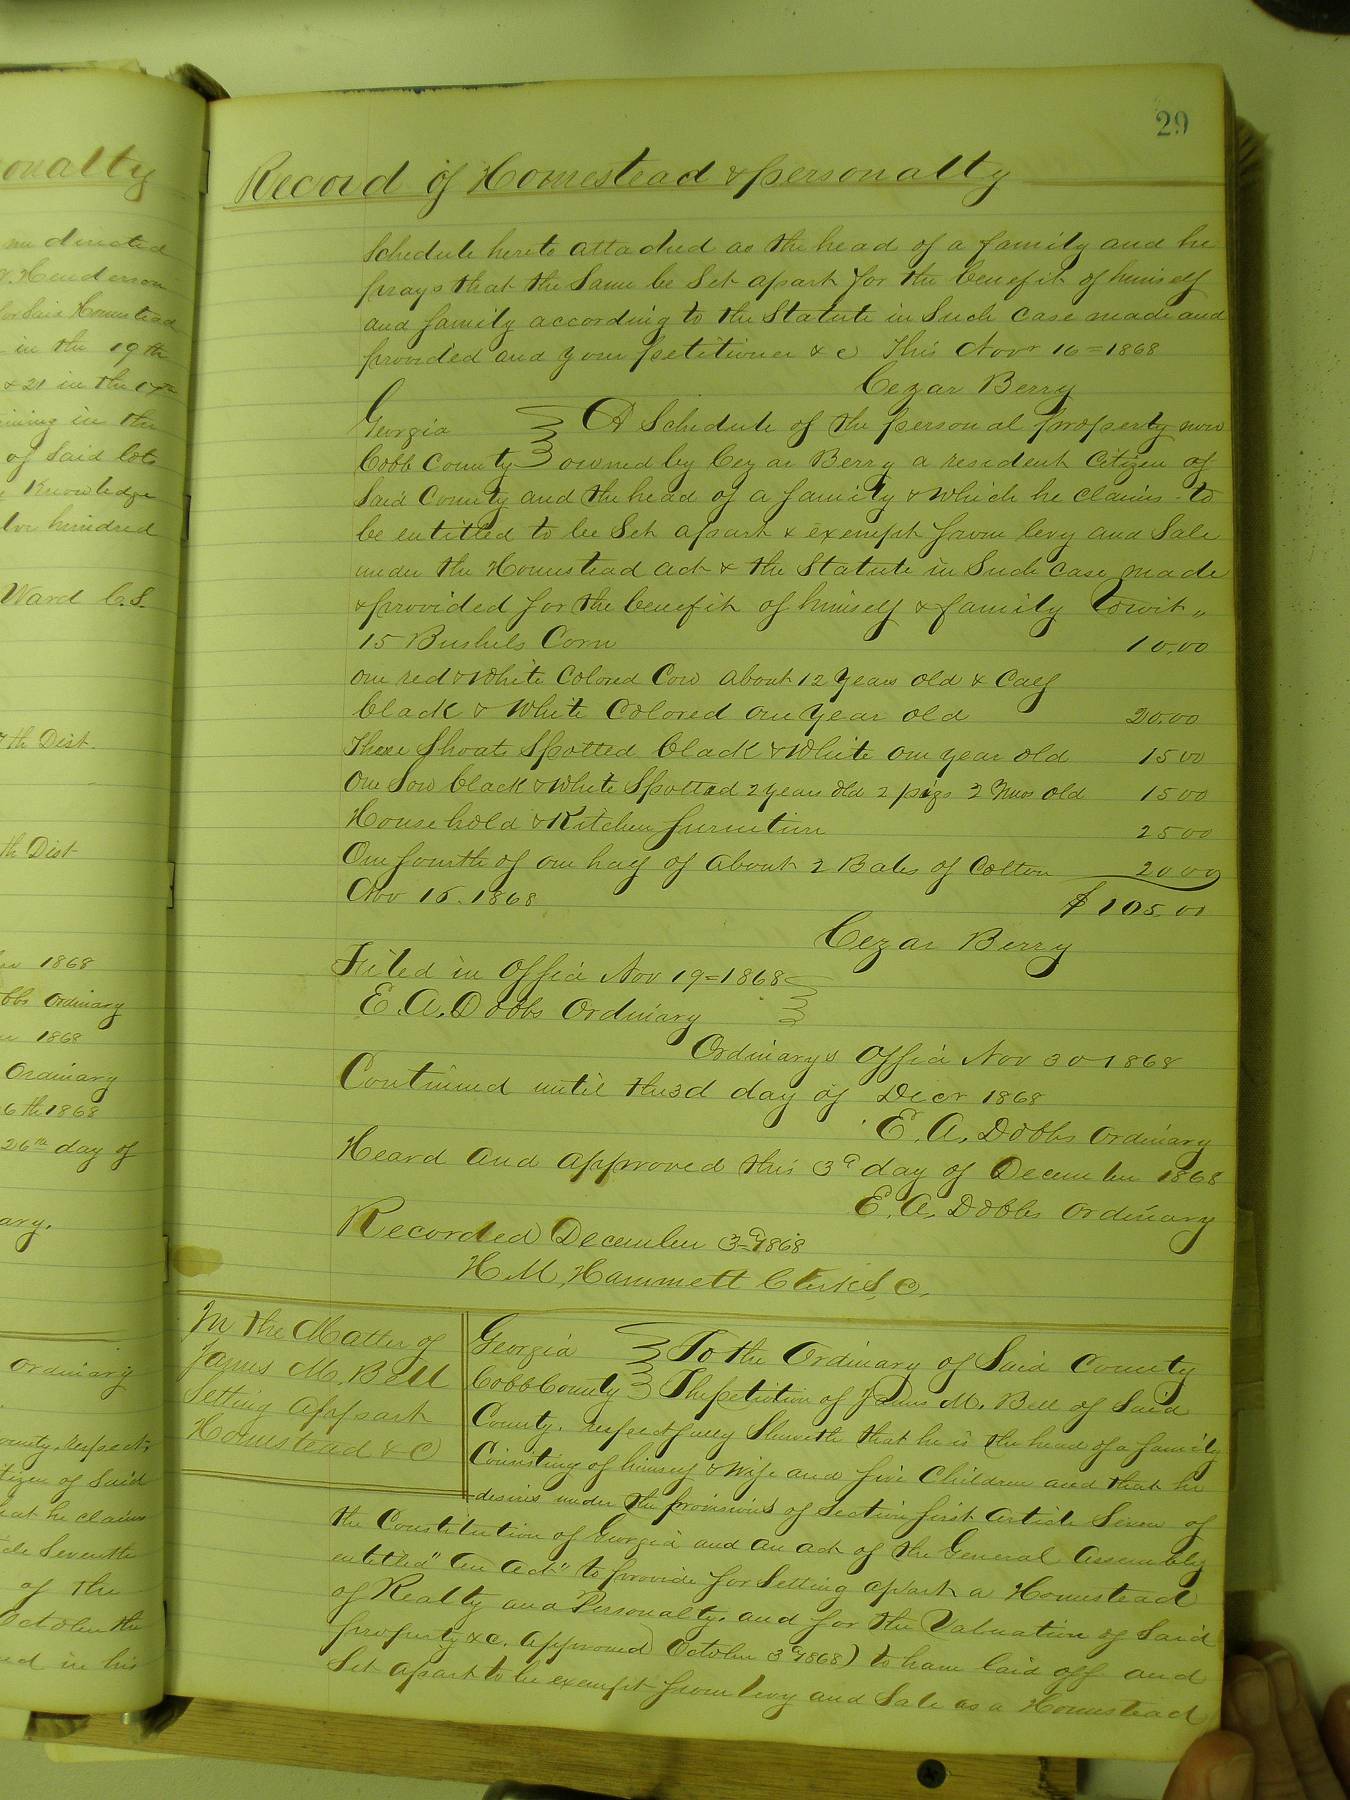 29
Record of Homestead & personalty
Schedule hereto attached as the head of a family and he
prays that the Same be Set apart for the benefit of himself
and family according to the Statute in Such case made and
provided and your petitioner &c This Novr 16=1868
Cezar Berry
Georgia A Schedule of the personal property now
Cobb County owned by Cezar Berry a resident Citizen of
Said County and the head of a family & which he claims to
be entitled to be Set apart & exempt from levy and Sale
under the Homestead act & the Statute in Such case made
& provided for the benefit of himself & family Towit "
15 Bushels Corn 10.00
one red & White Colored Cow about 12 years old & Calf
black & White Colored one year old 20.00
Three Shoats Spotted black & White one year old 15 00
One Sow black & White Spotted 2 years old 2 pigs 2 mos old 15 00
Household & Kitchen furniture 25 00
One fourth of one half of about 2 Bales of Cotton 20 00
Nov 16. 1868 $105.00
Cezar Berry
Filed in office Nov 19=1868
E. A. Dobbs Ordinary
Ordinarys office Nov 30 1868
Continued until the 3d day of Decr 1868
E. A. Dobbs Ordinary
Heard and approved this 3d day of December 1868
E. A. Dobbs Ordinary
Recorded December 3d 1868
H. M. Hammett Clerk S. C.
In the Matter of
James M. Bell
Setting Appart
Homestead &C
Georgia To the Ordinary of Said County
Cobb County The petition of James M. Bell of Said
County. respectfully Sheweth that he is the head of a family
Consisting of himself & Wife and five Children and that he
desires under the provisions of Section first Article Seven of
the Constitution of Georgia and an act of the General Assembly
entitled "An Act" to provide for Setting apart a Homestead
of Realty and Personalty. and for the Valuation of Said
property &c. Approved October 3d 1868) to have laid off and
Set apart to be exempt from levy and Sale as a Homestead